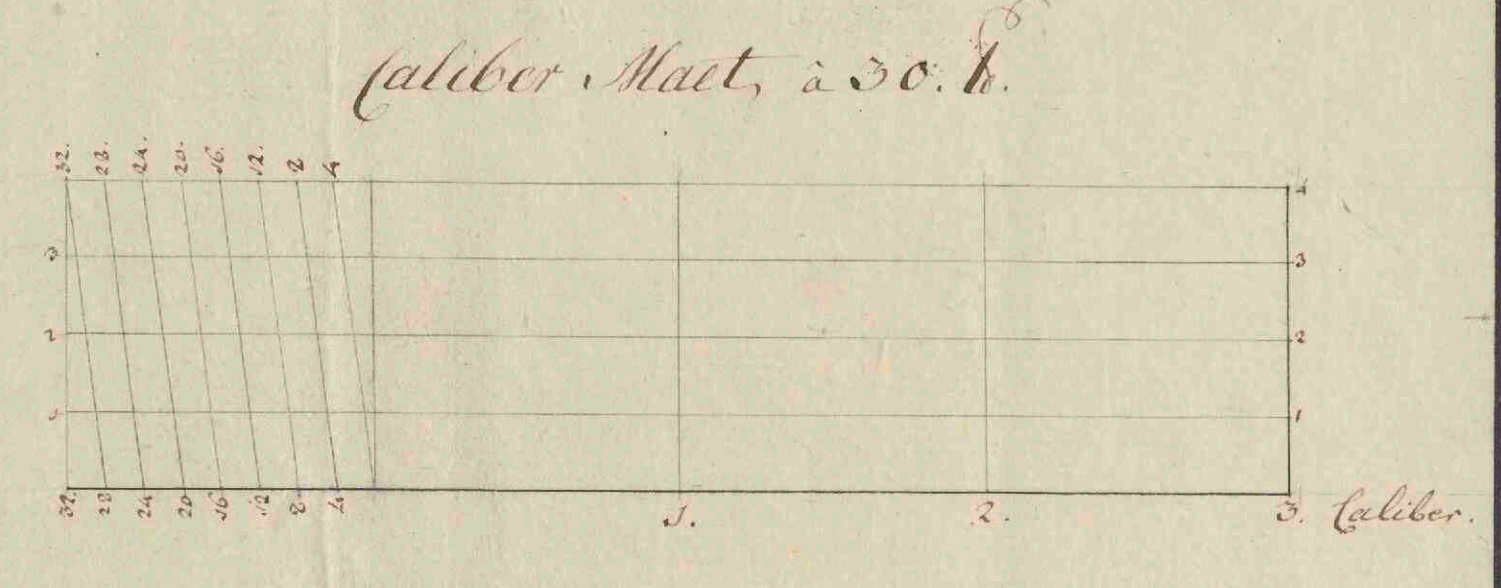 Caliber Maet, â 30. ℔.
32. 28. 24. 20. 16. 12. 8 4
4
3 3
2 2
1 1
32. 28 24 20 16 12 8 4 1. 2. 3. Caliber.